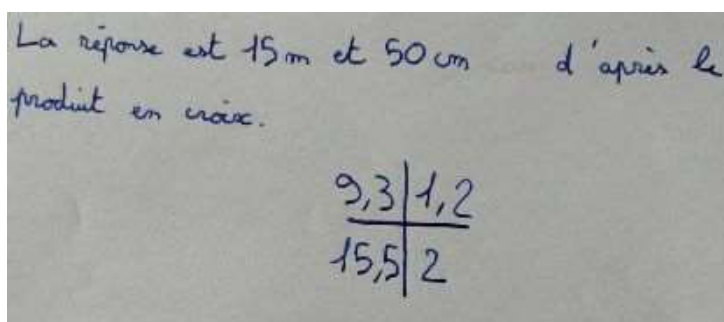 La réponse est 15 m et 50 cm d'après le
produit en croix.
9,3 | 1,2
15,5 | 2